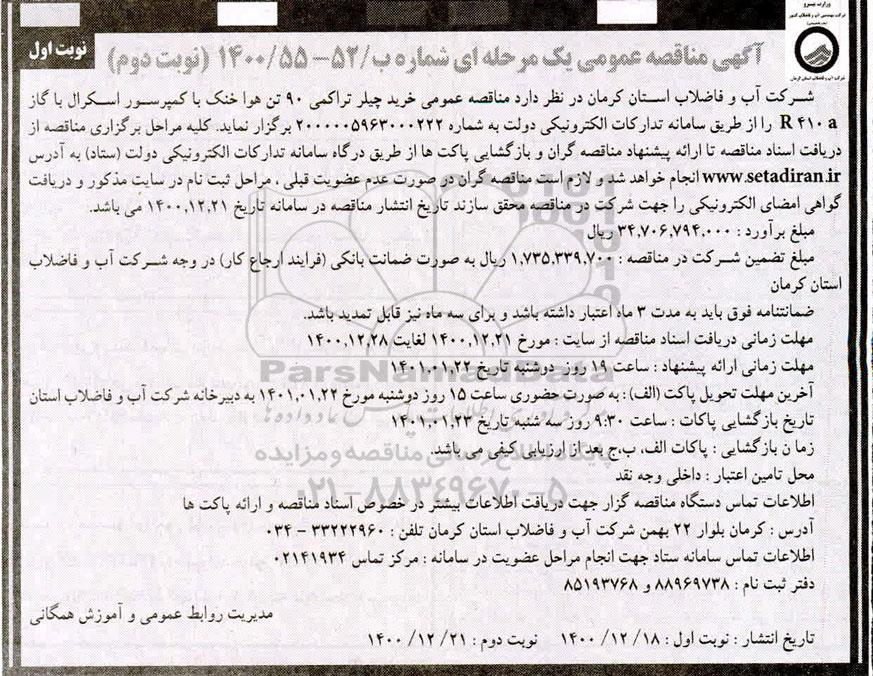 وزارت نیرو
شرکت مهندسی آب و فاضلاب کشور
شرکت آب و فاضلاب استان کرمان
نوبت اول
آگهی مناقصه عمومی یک مرحله ای شماره ب/۵۲- ۱۴۰۰/۵۵ (نوبت دوم)
شرکت آب و فاضلاب استان کرمان در نظر دارد مناقصه عمومی خرید چیلر تراکمی ۹۰ تن هوا خنک با کمپرسور اسکرال با گاز
R ۴۱۰ a را از طریق سامانه تدارکات الکترونیکی دولت به شماره ۲۰۰۰۰۰۵۹۶۳۰۰۰۲۲۲ برگزار نماید. کلیه مراحل برگزاری مناقصه از
دریافت اسناد مناقصه تا ارائه پیشنهاد مناقصه گران و بازگشایی پاکت ها از طریق درگاه سامانه تدارکات الکترونیکی دولت (ستاد) به آدرس
www.setadiran.ir انجام خواهد شد و لازم است مناقصه گران در صورت عدم عضویت قبلی ، مراحل ثبت نام در سایت مذکور و دریافت
گواهی امضای الکترونیکی را جهت شرکت در مناقصه محقق سازند تاریخ انتشار مناقصه در سامانه تاریخ ۱۴۰۰،۱۲،۲۱ می باشد.
مبلغ برآورد : ۳۴،۷۰۶،۷۹۴،۰۰۰ ریال
مبلغ تضمین شرکت در مناقصه : ۱،۷۳۵،۳۳۹،۷۰۰ ریال به صورت ضمانت بانکی (فرایند ارجاع کار) در وجه شرکت آب و فاضلاب
استان کرمان
ضمانتنامه فوق باید به مدت ۳ ماه اعتبار داشته باشد و برای سه ماه نیز قابل تمدید باشد.
مهلت زمانی دریافت اسناد مناقصه از سایت : مورخ ۱۴۰۰،۱۲،۲۱ لغایت ۱۴۰۰،۱۲،۲۸
مهلت زمانی ارائه پیشنهاد : ساعت ۱۹ روز دوشنبه تاریخ ۱۴۰۱،۰۱،۲۲
آخرین مهلت تحویل پاکت (الف) : به صورت حضوری ساعت ۱۵ روز دوشنبه مورخ ۱۴۰۱،۰۱،۲۲ به دبیرخانه شرکت آب و فاضلاب استان
تاریخ بازگشایی پاکات : ساعت ۹:۳۰ روز سه شنبه تاریخ ۱۴۰۱،۰۱،۲۳
زمان بازگشایی : پاکات الف، ب،ج بعد از ارزیابی کیفی می باشد.
محل تامین اعتبار : داخلی وجه نقد
اطلاعات تماس دستگاه مناقصه گزار جهت دریافت اطلاعات بیشتر در خصوص اسناد مناقصه و ارائه پاکت ها
آدرس : کرمان بلوار ۲۲ بهمن شرکت آب و فاضلاب استان کرمان تلفن : ۳۳۲۲۲۹۶۰ - ۰۳۴
اطلاعات تماس سامانه ستاد جهت انجام مراحل عضویت در سامانه : مرکز تماس ۰۲۱۴۱۹۳۴
دفتر ثبت نام : ۸۸۹۶۹۷۳۸ و ۸۵۱۹۳۷۶۸
مدیریت روابط عمومی و آموزش همگانی
تاریخ انتشار : نوبت اول : ۱۸/ ۱۲/ ۱۴۰۰ نوبت دوم : ۲۱/ ۱۲/ ۱۴۰۰
ParsNamadData
پایگاه اطلاع رسانی مناقصه و مزایده
۰۲۱-۸۸۳۴۹۶۷۰-۵